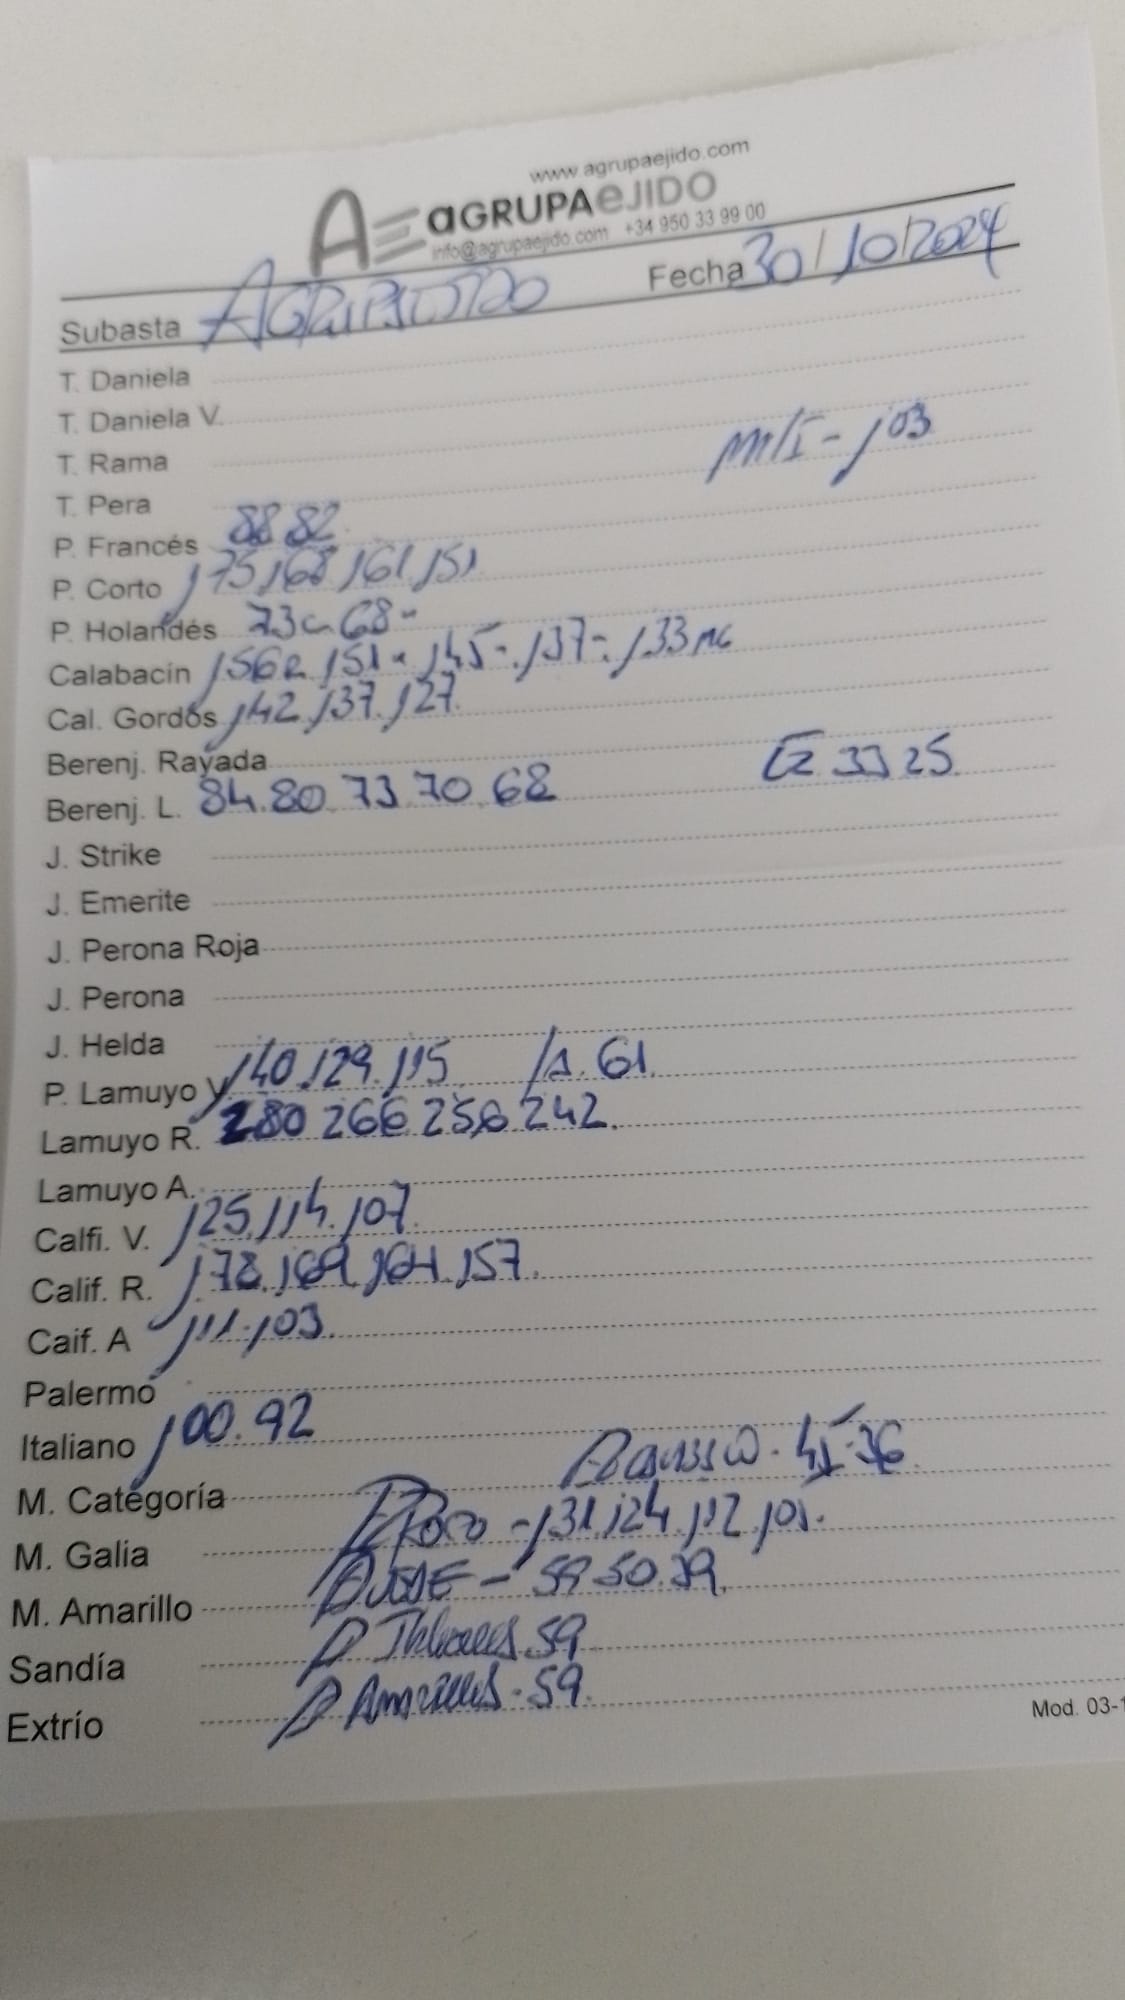 www.agrupaejido.com
AGRUPAEJIDO
info@agrupaejido.com +34 950 33 99 00
Subasta AGRUPAEJIDO Fecha 30/10/2024
T. Daniela
T. Daniela V.
T. Rama
T. Pera - 103
P. Francés 88 82
P. Corto 175 168 161 151
P. Holandés 73 68
Calabacín 156 151 - 145 - 137 - 133
Cal. Gordos 142 137 127
Berenj. Rayada
Berenj. L. 84.80 73 70 68 33 25
J. Strike
J. Emerite
J. Perona Roja
J. Perona
J. Helda
P. Lamuyo V 140.129.115 61
Lamuyo R. 280 266 256 242
Lamuyo A.
Calfi. V. 125.114.107
Calif. R. 178.169.164.157
Caif. A 111.103
Palermo
Italiano 100.92
M. Categoría 45-36
M. Galia - 131.124.112.101
M. Amarillo - 59 50.39
Sandía 59
Extrío 59
Mod. 03-1